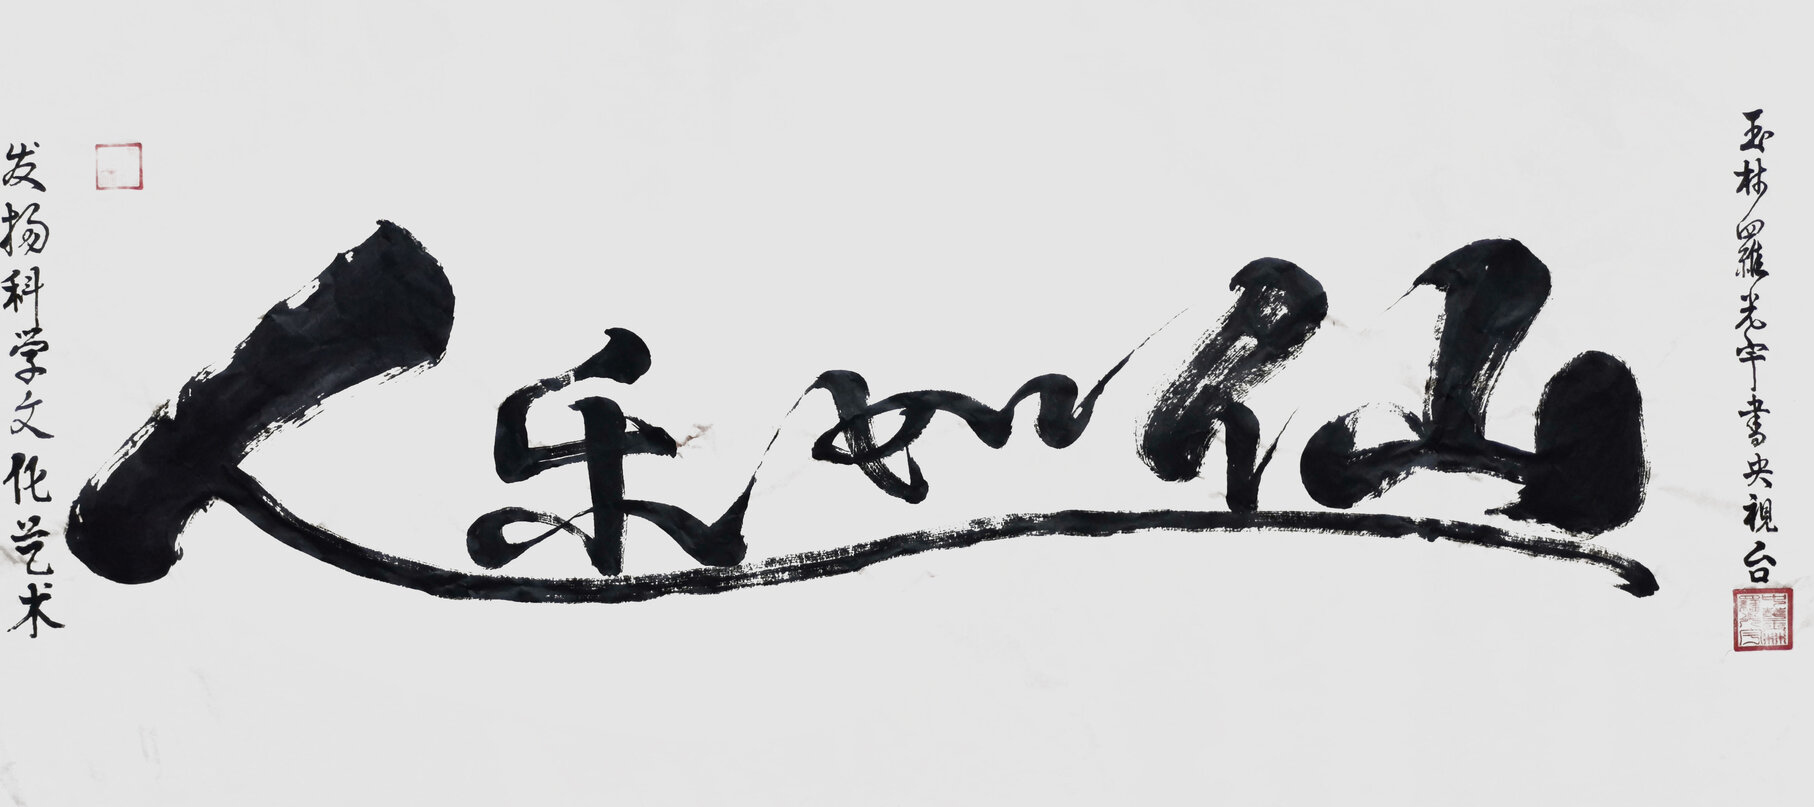 发扬科学文化艺术
人乐如仙
玉林羅光宇書央視台